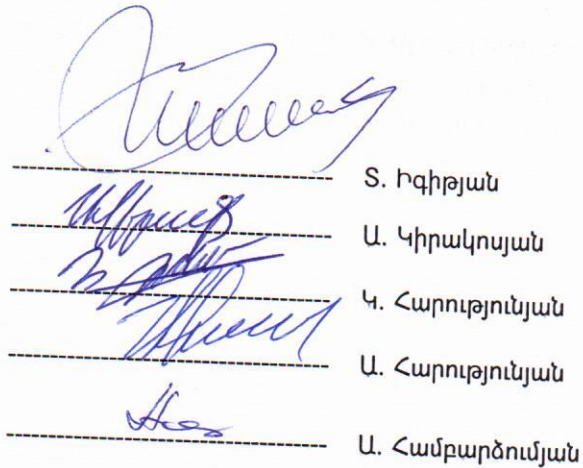 Տ. Իգիթյան
Ա. Կիրակոսյան
Կ. Հարությունյան
Ա. Հարությունյան
Ա. Համբարձումյան